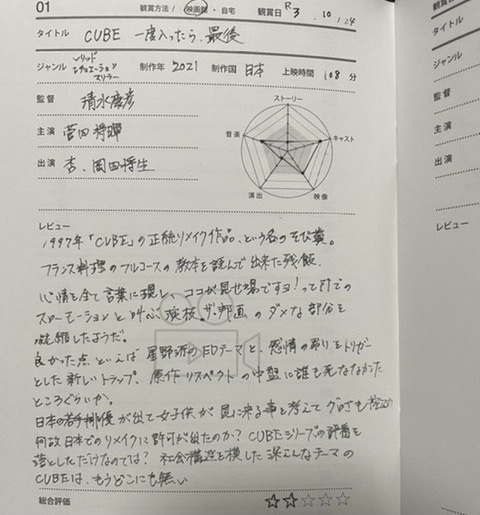 01 観賞方法/ 映画館 ・ 自宅 観賞日 R3 . 10 / 24
タイトル CUBE 一度入ったら、最後
ジャンル ソリッドシチュエーションスリラー 制作年 2021 制作国 日本 上映時間 108 分
監督 清水康彦
主演 菅田将暉
出演 杏、岡田将生
ストーリー
音楽 キャスト
演出 映像
レビュー
1997年「CUBE」の正統リメイク作品、という名の
フランス料理のフルコースの教本を読んで出来た残飯。
心情を全て言葉に現し、ココが見せ場ですヨ!って
スローモーションと叫ぶ演技。ザ・邦画のダメな部分を
凝縮したようだ。
良かった点といえば星野源のEDテーマと、感情の昂りをトリガー
とした新しいトラップ、原作リスペクトの中盤に誰も死ななかった
ところぐらいか。
日本の若手俳優が出て女子供が見に来る事を考えてグロさも
何故日本でのリメイクに許可が出たのか? CUBEシリーズの評価を
落としただけなのでは? 社会構造を模した深こんなテーマの
CUBEは、もうどこにも無い
総合評価
監督
主演
出演
レビュー